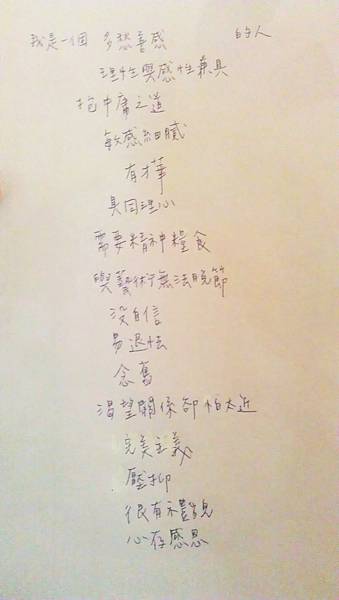 我是一個 多愁善感 的人
理性與感性兼具
抱中庸之道
敏感細膩
有才華
具同理心
需要精神糧食
與藝術無法脫節
沒自信
易退怯
念舊
渴望關係卻怕太近
完美主義
壓抑
很有禮貌
心存感恩